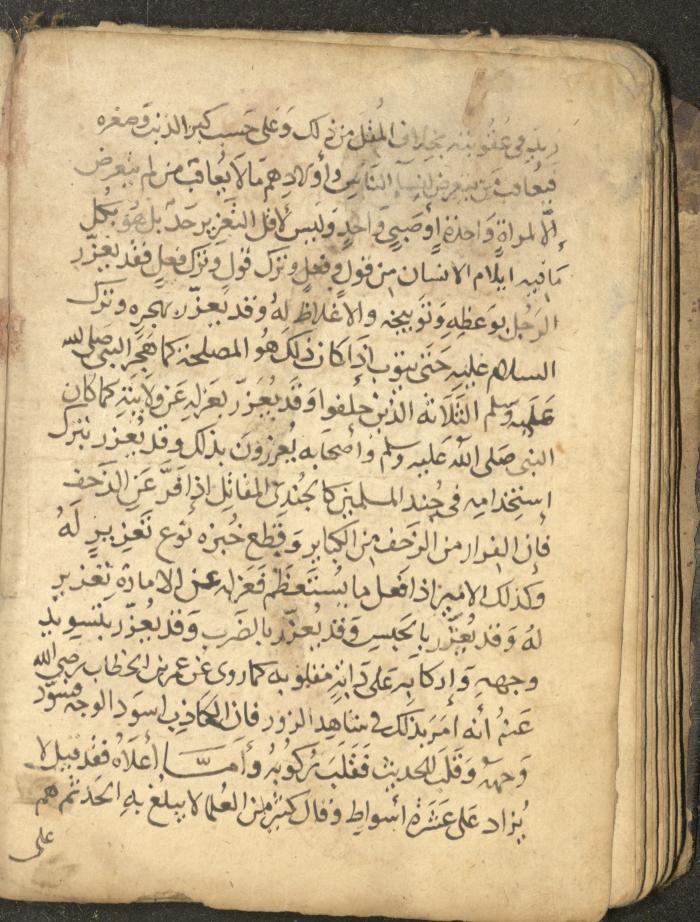 زيد في عقوبته بخلاف المقل من ذلك وعلى حسب كبر الذنب وصغره
فيعاقب من يتعرض لنسآ الناس وأولادهم ما لا يعاقب من لم يتعرض
إلا لمراة واحدة أو صبي واحد وليس لاقل التعزير حد بل هو بكل
ما فيه ايلام الانسان من قول وفعل وترك قول وترك فعل فقد يعزر
الرجل بوعظه وتوبيخه والاغلاظ له وقد يعزر بهجره وترك
السلام عليه حتى يتوب اذا كان ذلك هو المصلحة كما هجر النبي صلى الله
عليه وسلم الثلاثة الذين خلفوا وقد يعزر بعزله عن ولايته كما كان
النبي صلى الله عليه وسلم وأصحابه يعزرون بذلك وقد يعزر بترك
استخدامه في جند المسلمين كالجندي المقاتل اذا فر عن الزحف
فإن الفرار من الزحف من الكباير وقطع خبزه نوع تعزير له
وكذلك الامير اذا فعل ما يستعظم فعزله عن الامارة تعزير
له وقد يعزر بالحبس وقد يعزر بالضرب وقد يعزر بتسويد
وجهه وإركابه على دابة مقلوبه كما روى عن عمر بن الخطاب رضي الله
عنه أنه أمر بذلك في شاهد الزور فان الكاذب اسود الوجه فسود
وجهه وقلب الحديث فقلب ركوبه وأمّا أعلاه فقد قيل لا
يزاد على عشرة أسواط وقال كثير من العلما لا يبلغ به الحد ثم هم
على